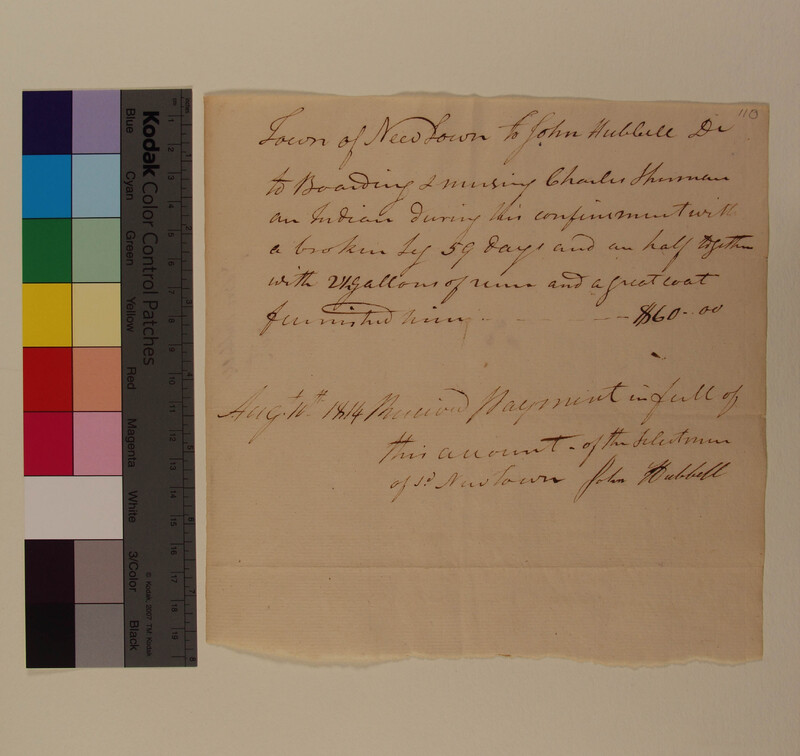 110
Town of NewTown to John Hubbell Dr
to Boarding & nursing Charles Shurman
an Indian during his confinement with
a broken leg 59 days and an half together
with 2½ gallons of rum and a great coat
furnished him - - - $60-00
Augt 10th 1814 Received payment in full of
this account - of the Selectmen
of sd NewTown John Hubbell
Kodak Color Control Patches
Blue
Cyan
Green
Yellow
Red
Magenta
White
3/Color
Black
© Kodak, 2007 TM: Kodak
cm
1
2
3
4
5
6
7
8
9
10
11
12
13
14
15
16
17
18
19